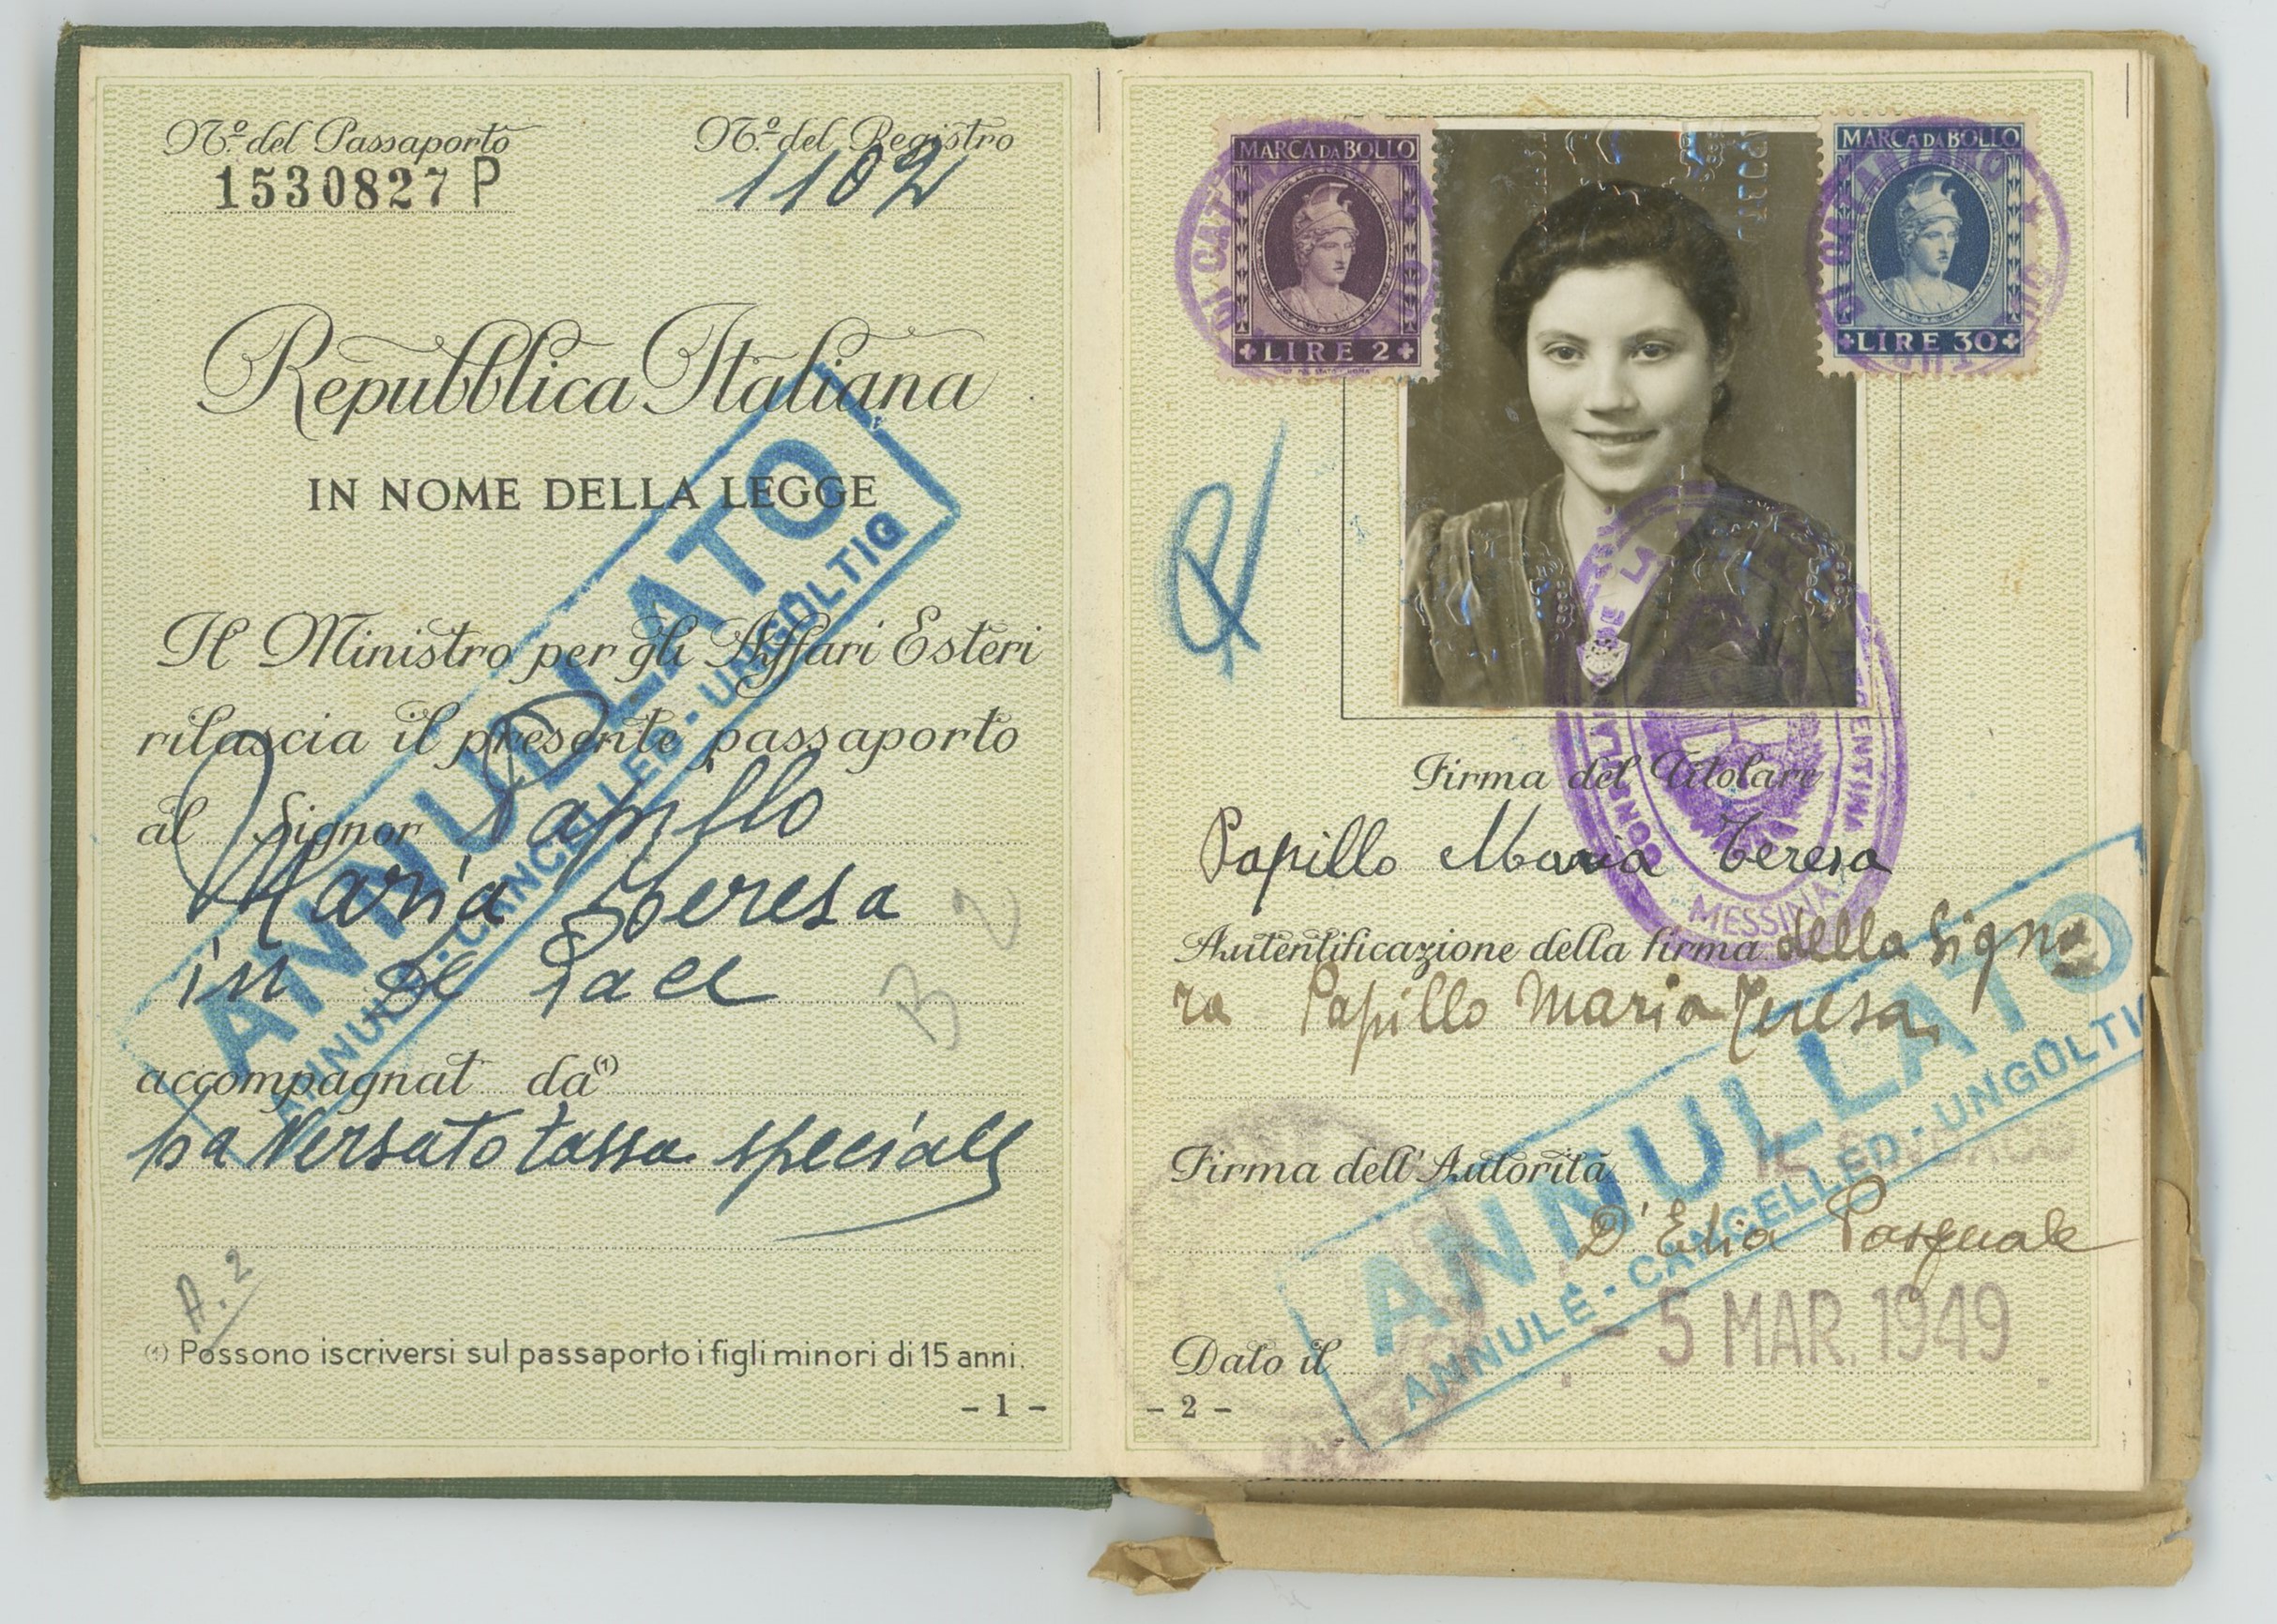 Nº del Passaporto
1530827 P
Nº del Registro
1102
Repubblica Italiana
IN NOME DELLA LEGGE
Il Ministro per gli Affari Esteri
rilascia il presente passaporto
al Signor Papillo
Maria Teresa
in De Pace
accompagnat da (1)
ha versato tassa speciale
A. 2
B 2
(1) Possono iscriversi sul passaporto i figli minori di 15 anni.
- 1 -
ANNULLATO
ANNULÉ - CANCELLED - UNGÜLTIG
MARCA DA BOLLO
LIRE 2
MARCA DA BOLLO
LIRE 30
DI CATANZARO
DI CATANZARO
CONSULADO DE LA ARGENTINA
MESSINA
Firma del Titolare
Papillo Maria Teresa
Autentificazione della firma della Signo
ra Papillo Maria Teresa
Firma dell'Autorità
D'Elia Pasquale
Dato il - 5 MAR. 1949
- 2 -
ANNULLATO
ANNULÉ - CANCELLED - UNGÜLTI